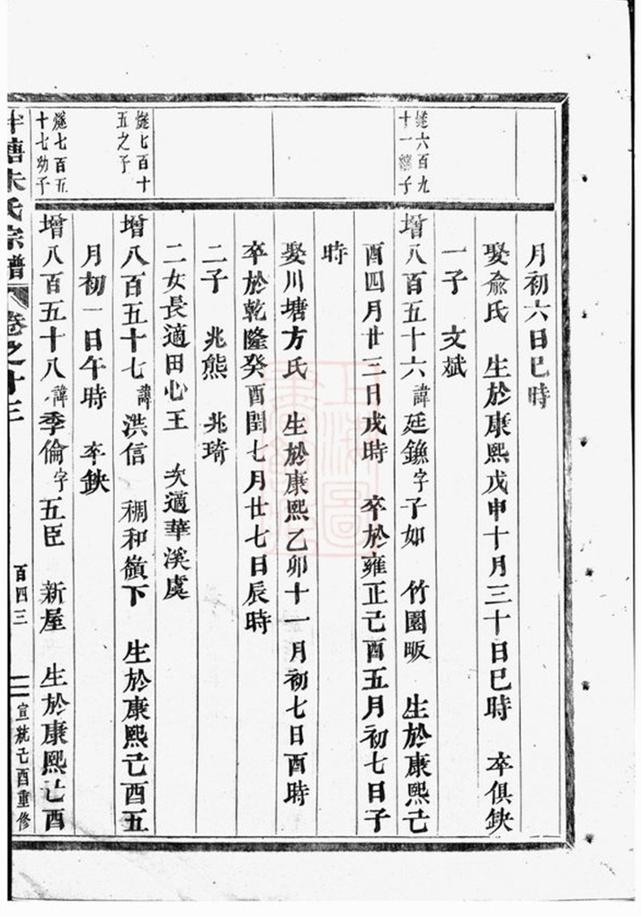 月初六日巳時
娶俞氏 生於康熙戊申十月三十日巳時 卒俱缺
一子 文斌
燧六百九十一繼子
增八百五十六諱廷鐮字子如 竹園畈 生於康熙己
酉四月廿三日戌時 卒於雍正己酉五月初七日子
時
娶川塘方氏 生於康熙乙卯十一月初七日酉時
卒於乾隆癸酉閏七月廿七日辰時
二子 兆熊 兆琦
二女長適田心王 次適華溪虞
燧七百十五之子
增八百五十七諱洪信 稠和嶺下 生於康熙己酉五
月初一日午時 卒缺
燧七百五十七幼子
增八百五十八諱季倫字五臣 新屋 生於康熙己酉
塘朱氏宗譜 卷之十三 百四三 宣統己酉重修